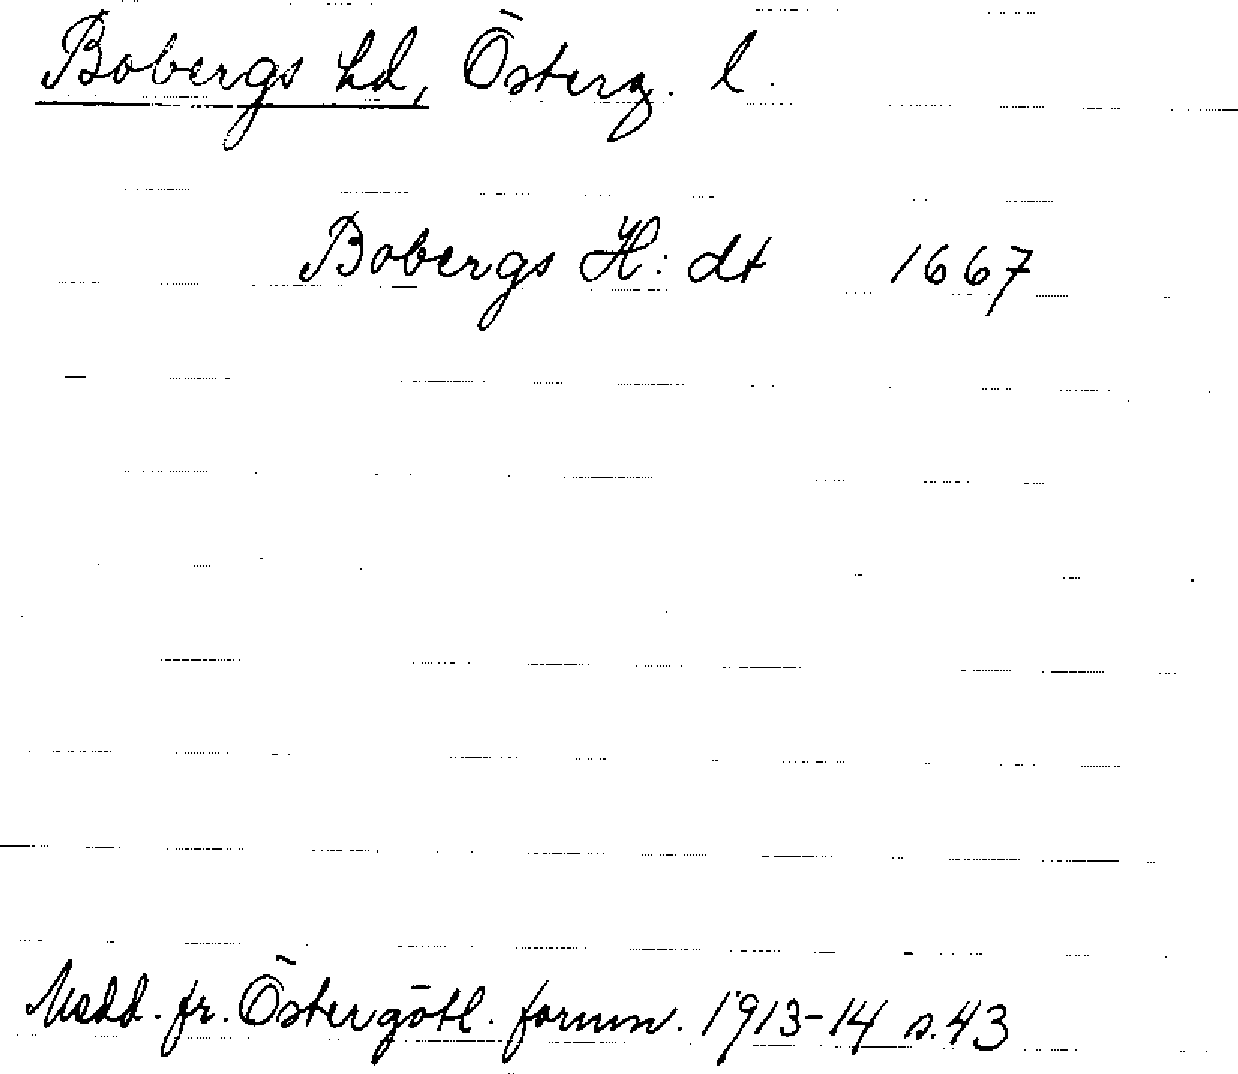 Bobergs hd, Österg. l.
Bobergs H: dt 1667
Medd. fr. Östergötl. fornm. 1913-14 s. 43